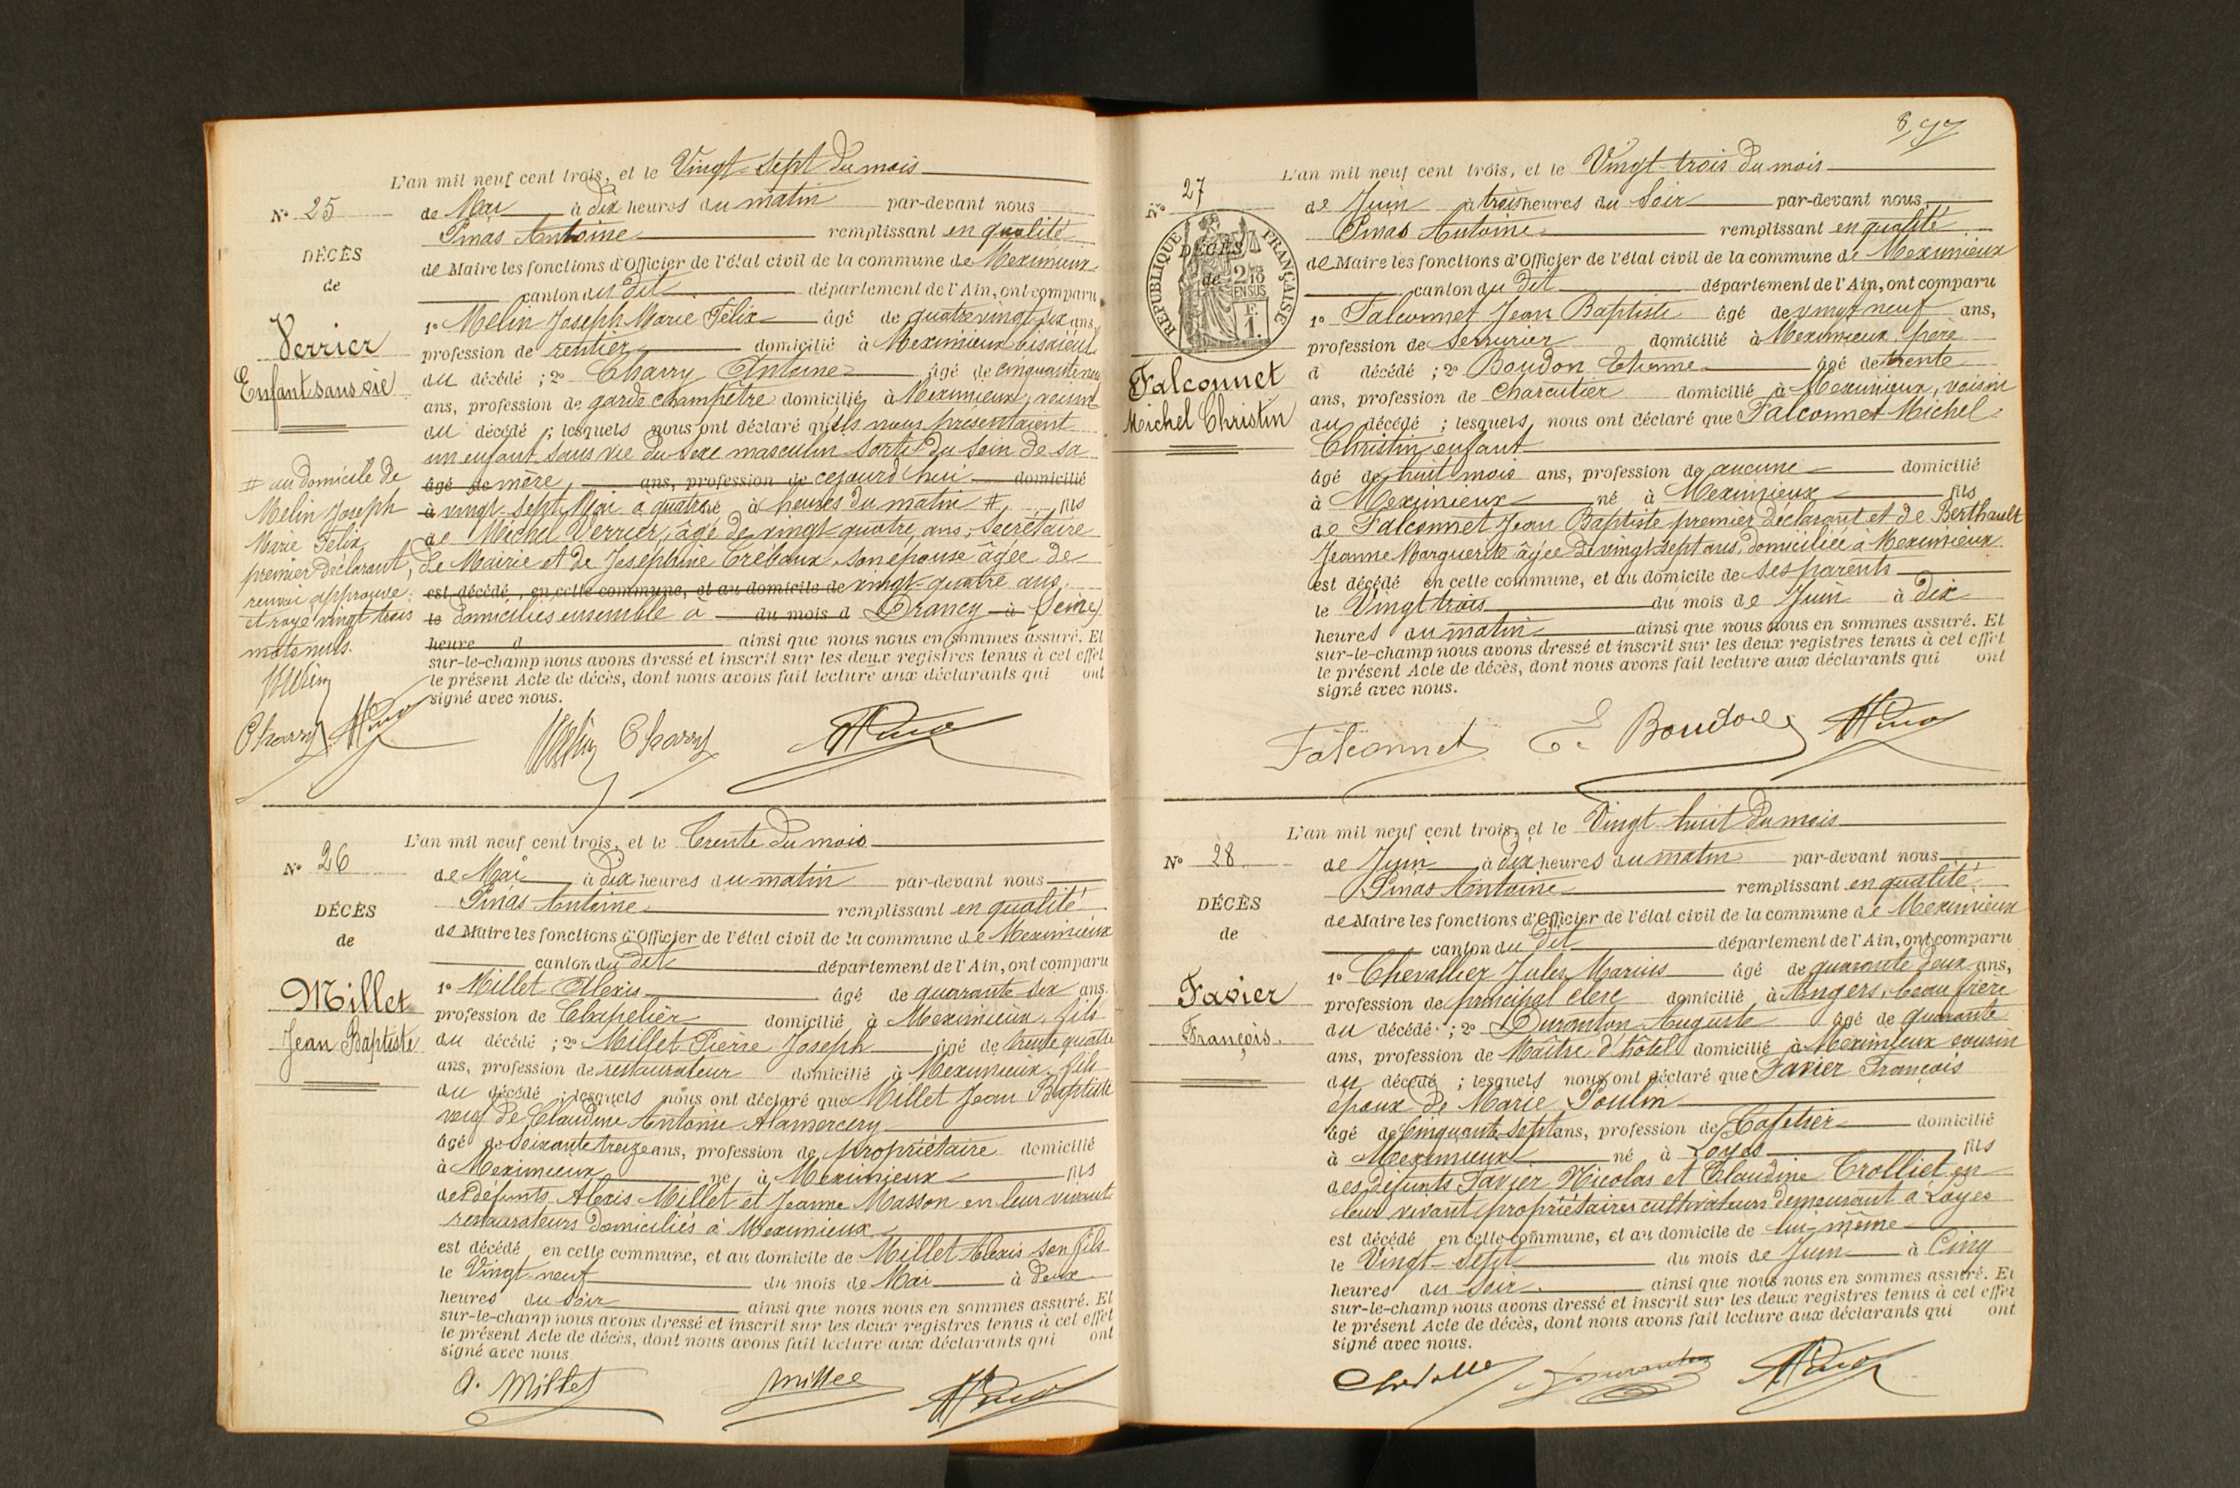 L'an mil neuf cent trois, et le Vingt-sept du mois
N° 25
de Mai à dix heures du matin par-devant nous
Pinas Antoine remplissant en qualité
DÉCÈS
de Maire les fonctions d'Officier de l'état civil de la commune de Meximieux
de
canton du dit département de l'Ain, ont comparu
1° Melin Joseph Marie Félix âgé de quatre vingt six ans,
Verrier
profession de rentier domicilié à Meximieux bisaïeul
Enfant sans vie
du décédé ; 2° Charry Antoine âgé de cinquante neuf
ans, profession de garde champêtre domicilié à Meximieux, voisin
du décédé ; lesquels nous ont déclaré qu'ils nous présentaient
un enfant sans vie du sexe masculin sorti du sein de sa
âgé de mère, ans, profession de cejourd'hui domicilié
à vingt-sept Mai a quatre né à heures du matin # fils
de Michel Verrier, âgé de vingt-quatre ans, Secrétaire
de Mairie et de Joséphine Trébaux son épouse âgée de
est décédé, en cette commune, et au domicile de vingt-quatre ans,
le domiciliés ensemble a du mois d Drancy à (Seine)
heure d ainsi que nous nous en sommes assuré. Et
sur-le-champ nous avons dressé et inscrit sur les deux registres tenus à cet effet
le présent Acte de décès, dont nous avons fait lecture aux déclarants qui ont
signé avec nous.
# au domicile de
Melin Joseph
Marie Félix
premier déclarant,
renvoi approuvé
et rayé vingt trois
mots nuls.
Melin
Charry APinas
Melin Charry APinas
L'an mil neuf cent trois, et le Trente du mois
N° 26
de Mai à dix heures du matin par-devant nous
Pinas Antoine remplissant en qualité
DÉCÈS
de Maire les fonctions d'Officier de l'état civil de la commune de Meximieux
de
canton du dit département de l'Ain, ont comparu
1° Millet Alexis âgé de quarante six ans.
Millet
profession de Chapelier domicilié à Meximieux, fils
Jean Baptiste
du décédé ; 2° Millet Pierre Joseph âgé de trente quatre
ans, profession de restaurateur domicilié à Meximieux, fils
du décédé ; lesquels nous ont déclaré que Millet Jean Baptiste
veuf de Claudine Antonie Alamercery
âgé de soixante treize ans, profession de propriétaire domicilié
à Meximieux né à Meximieux fils
des défunts Alexis Millet et Jeanne Masson en leur vivant
restaurateurs domiciliés à Meximieux
est décédé en cette commune, et au domicile de Millet Alexis son fils
le Vingt-neuf du mois de Mai à deux
heures du soir ainsi que nous nous en sommes assuré. Et
sur-le-champ nous avons dressé et inscrit sur les deux registres tenus à cet effet
le présent Acte de décès, dont nous avons fait lecture aux déclarants qui ont
signé avec nous
A. Millet Millet APinas
8/97
L'an mil neuf cent trois, et le Vingt-trois du mois
N° 27
de Juin à trois heures du Soir par-devant nous
Pinas Antoine remplissant en qualité
DÉCÈS
RÉPUBLIQUE FRANÇAISE
2/10 EN SUS
F. 1.
de Maire les fonctions d'Officier de l'état civil de la commune de Meximieux
de
canton du dit département de l'Ain, ont comparu
1° Falconnet Jean Baptiste âgé de vingt neuf ans,
profession de serrurier domicilié à Meximieux père
Falconnet
d décédé ; 2° Boudon Etienne âgé de trente
Michel Christin
ans, profession de charcutier domicilié à Meximieux, voisin
du décédé ; lesquels nous ont déclaré que Falconnet Michel
Christin enfant
âgé de huit mois ans, profession de aucune domicilié
à Meximieux né à Meximieux fils
de Falconnet Jean Baptiste premier déclarant et de Berthault
Jeanne Marguerite âgée de vingt sept ans, domiciliée a Meximieux
est décédé en cette commune, et au domicile de ses parents
le Vingt trois du mois de Juin à dix
heures du matin ainsi que nous nous en sommes assuré. Et
sur-le-champ nous avons dressé et inscrit sur les deux registres tenus à cet effet
le présent Acte de décès, dont nous avons fait lecture aux déclarants qui ont
signé avec nous.
Falconnet E. Boudon APinas
L'an mil neuf cent trois, et le Vingt-huit du mois
N° 28
de Juin à dix heures du matin par-devant nous
Pinas Antoine remplissant en qualité
DÉCÈS
de Maire les fonctions d'Officier de l'état civil de la commune de Meximieux
de
canton du dit département de l'Ain, ont comparu
1° Chevallier Jules Marius âgé de quarante deux ans,
Favier
profession de principal clerc domicilié à Angers, beau frère
François.
du décédé ; 2° Duranton Auguste âgé de quarante
ans, profession de Maître d'hôtel domicilié à Meximieux cousin
du décédé ; lesquels nous ont déclaré que Favier François
époux de Marie Poulin
âgé de Cinquante-sept ans, profession de Cafetier domicilié
à Meximieux né à Loyes fils
des défunts Favier Nicolas et Claudine Trolliet en
leur vivant propriétaires cultivateurs demeurant à Loyes
est décédé en cette commune, et au domicile de lui-même
le Vingt-sept du mois de Juin à Cinq
heures du soir ainsi que nous nous en sommes assuré. Et
sur-le-champ nous avons dressé et inscrit sur les deux registres tenus à cet effet
le présent Acte de décès, dont nous avons fait lecture aux déclarants qui ont
signé avec nous.
Duranton APinas